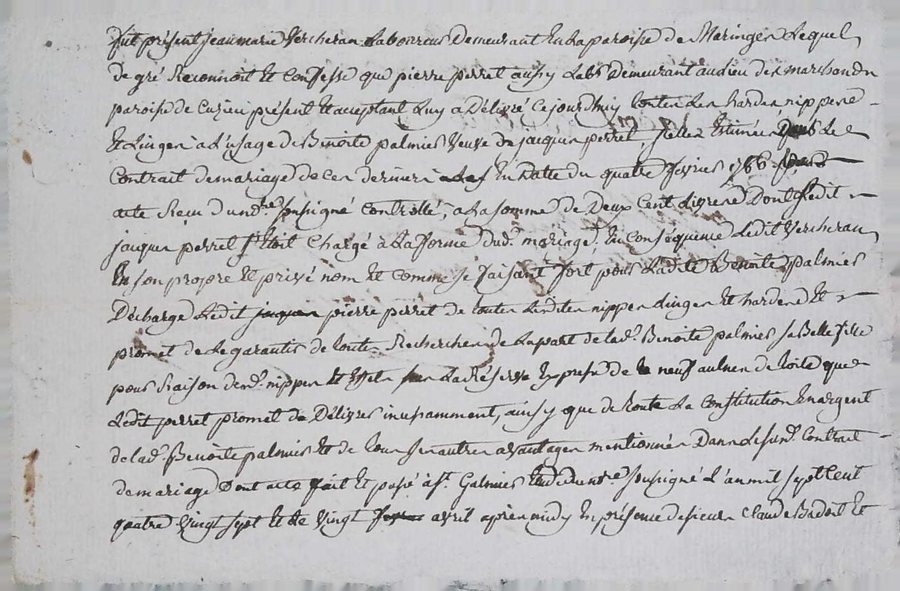 fut présent jean marie Vercheran Laboureur Demeurant En la paroisse de Maringes Lequel
De gré Reconnoit Et Confesse que pierre perret aussy Lab.r Demeurant au lieu des marchands
paroisse de Cuzieu présent Et acceptant Luy a Délivré Ce jourdhuy toutes Les hardes nippes
Et Linges à L'usage de Benoite palmier Veuve de jacques perret, Estimés Le
Contrat de mariage de Ces derniers En Datte du quatre fevrier
acte Reçu d'un no.re soussigné Controllé, a La somme de Deux Cent Livres Dont Ledit
jacques perret s'étoit Chargé à La forme dud. mariage. En Conséquence Ledit Vercheran
En son propre Et privé nom Et Comme se faisant fort pour Ladite Benoite palmier
Décharge Ledit pierre perret de toutes Lesdites nippes Linges Et hardes Et
promet de Le garantir de toutes Recherches de La part de lad. Benoite palmier sa Belle fille
pour Raison desd. nippes Et Effets La Réserve Expresse de neuf aulnes de toile que
Ledit perret promet de Délivrer incessamment, ainsy que de toute La Constitution En argent
de lad. Benoite palmier Et de tous ses autres avantages mentionnés Dans Le susd. Contrat
de mariage Dont acte fait Et passé à S.t Galmier soussigné L'an mil sept Cent
quatre Vingt sept Et Le Vingt avril après midy En présence de sieurs Claude Badoit Et